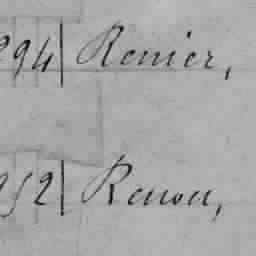 294 Renier,
252 Renou,